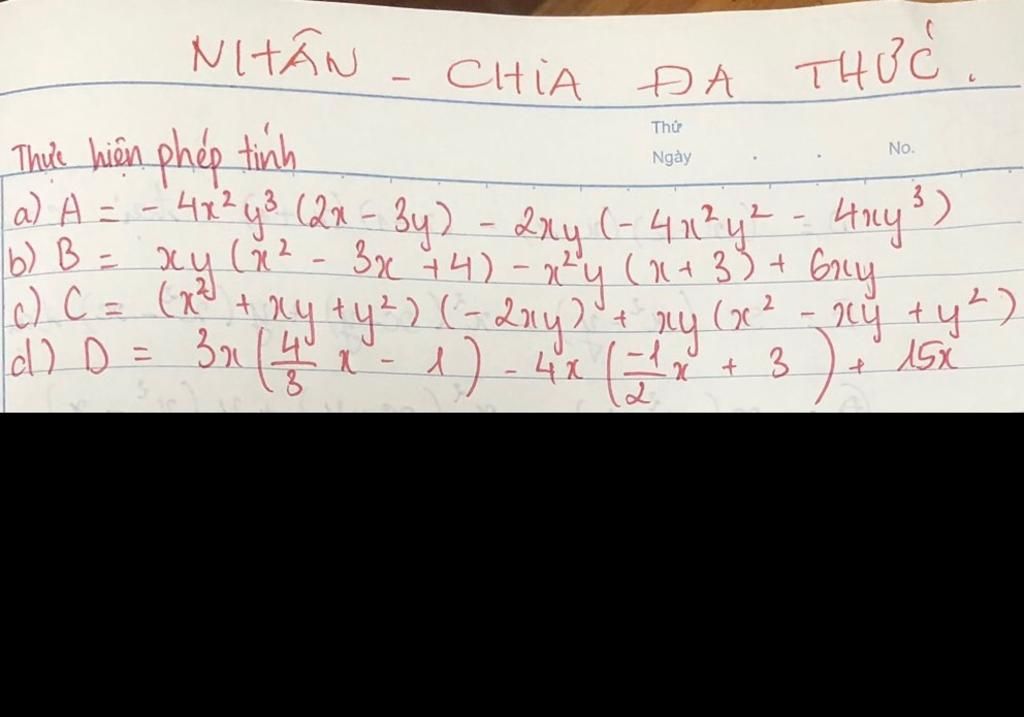 NHÂN - CHIA ĐA THỨC.
Thứ
Ngày . . No.
Thực hiện phép tính
a) A = - 4x²y³ (2x - 3y) - 2xy (- 4x²y² - 4xy³)
b) B = xy (x² - 3x + 4) - x²y (x + 3) + 6xy
c) C = (x² + xy + y²) (- 2xy) + xy (x² - xy + y²)
d) D = 3x (4/3 x - 1) - 4x (-1/2 x + 3) + 15x